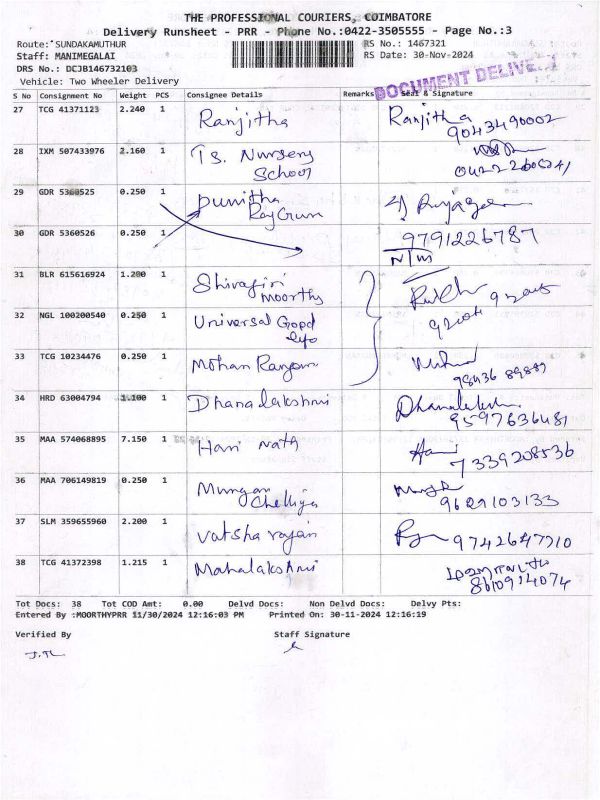 THE PROFESSIONAL COURIERS, COIMBATORE
Delivery Runsheet - PRR - Phone No.:0422-3505555 - Page No.:3
Route: SUNDAKAMUTHUR RS No.: 1467321
Staff: MANIMEGALAI RS Date: 30-Nov-2024
DRS No.: DCJB146732103
DOCUMENT DELIVE
Vehicle: Two Wheeler Delivery
S No Consignment No Weight PCS Consignee Details Remarks Seal & Signature
27 TCG 41371123 2.240 1 Ranjitha Ranjitha
9043490002
28 IXM 507433976 2.160 1 Ts. Nursery
School
29 GDR 5360525 0.250 1 Punitha
9791226787
30 GDR 5360526 0.250 1 N/W
31 BLR 615616924 1.200 1 Shivagiri
Moorthy
32 NGL 100200540 0.250 1 Universal Good
33 TCG 10234476 0.250 1 Mohan
34 HRD 63004794 1.100 1 Dhanalakshmi
9597636481
35 MAA 574068895 7.150 1 Hari nath Hari
7339208536
36 MAA 706149819 0.250 1 Murugan
9629103133
37 SLM 359655960 2.200 1 9742647710
38 TCG 41372398 1.215 1 Mahalakshmi
Tot Docs: 38 Tot COD Amt: 0.00 Delvd Docs: Non Delvd Docs: Delvy Pts:
Entered By :MOORTHYPRR 11/30/2024 12:16:03 PM Printed On: 30-11-2024 12:16:19
Verified By Staff Signature